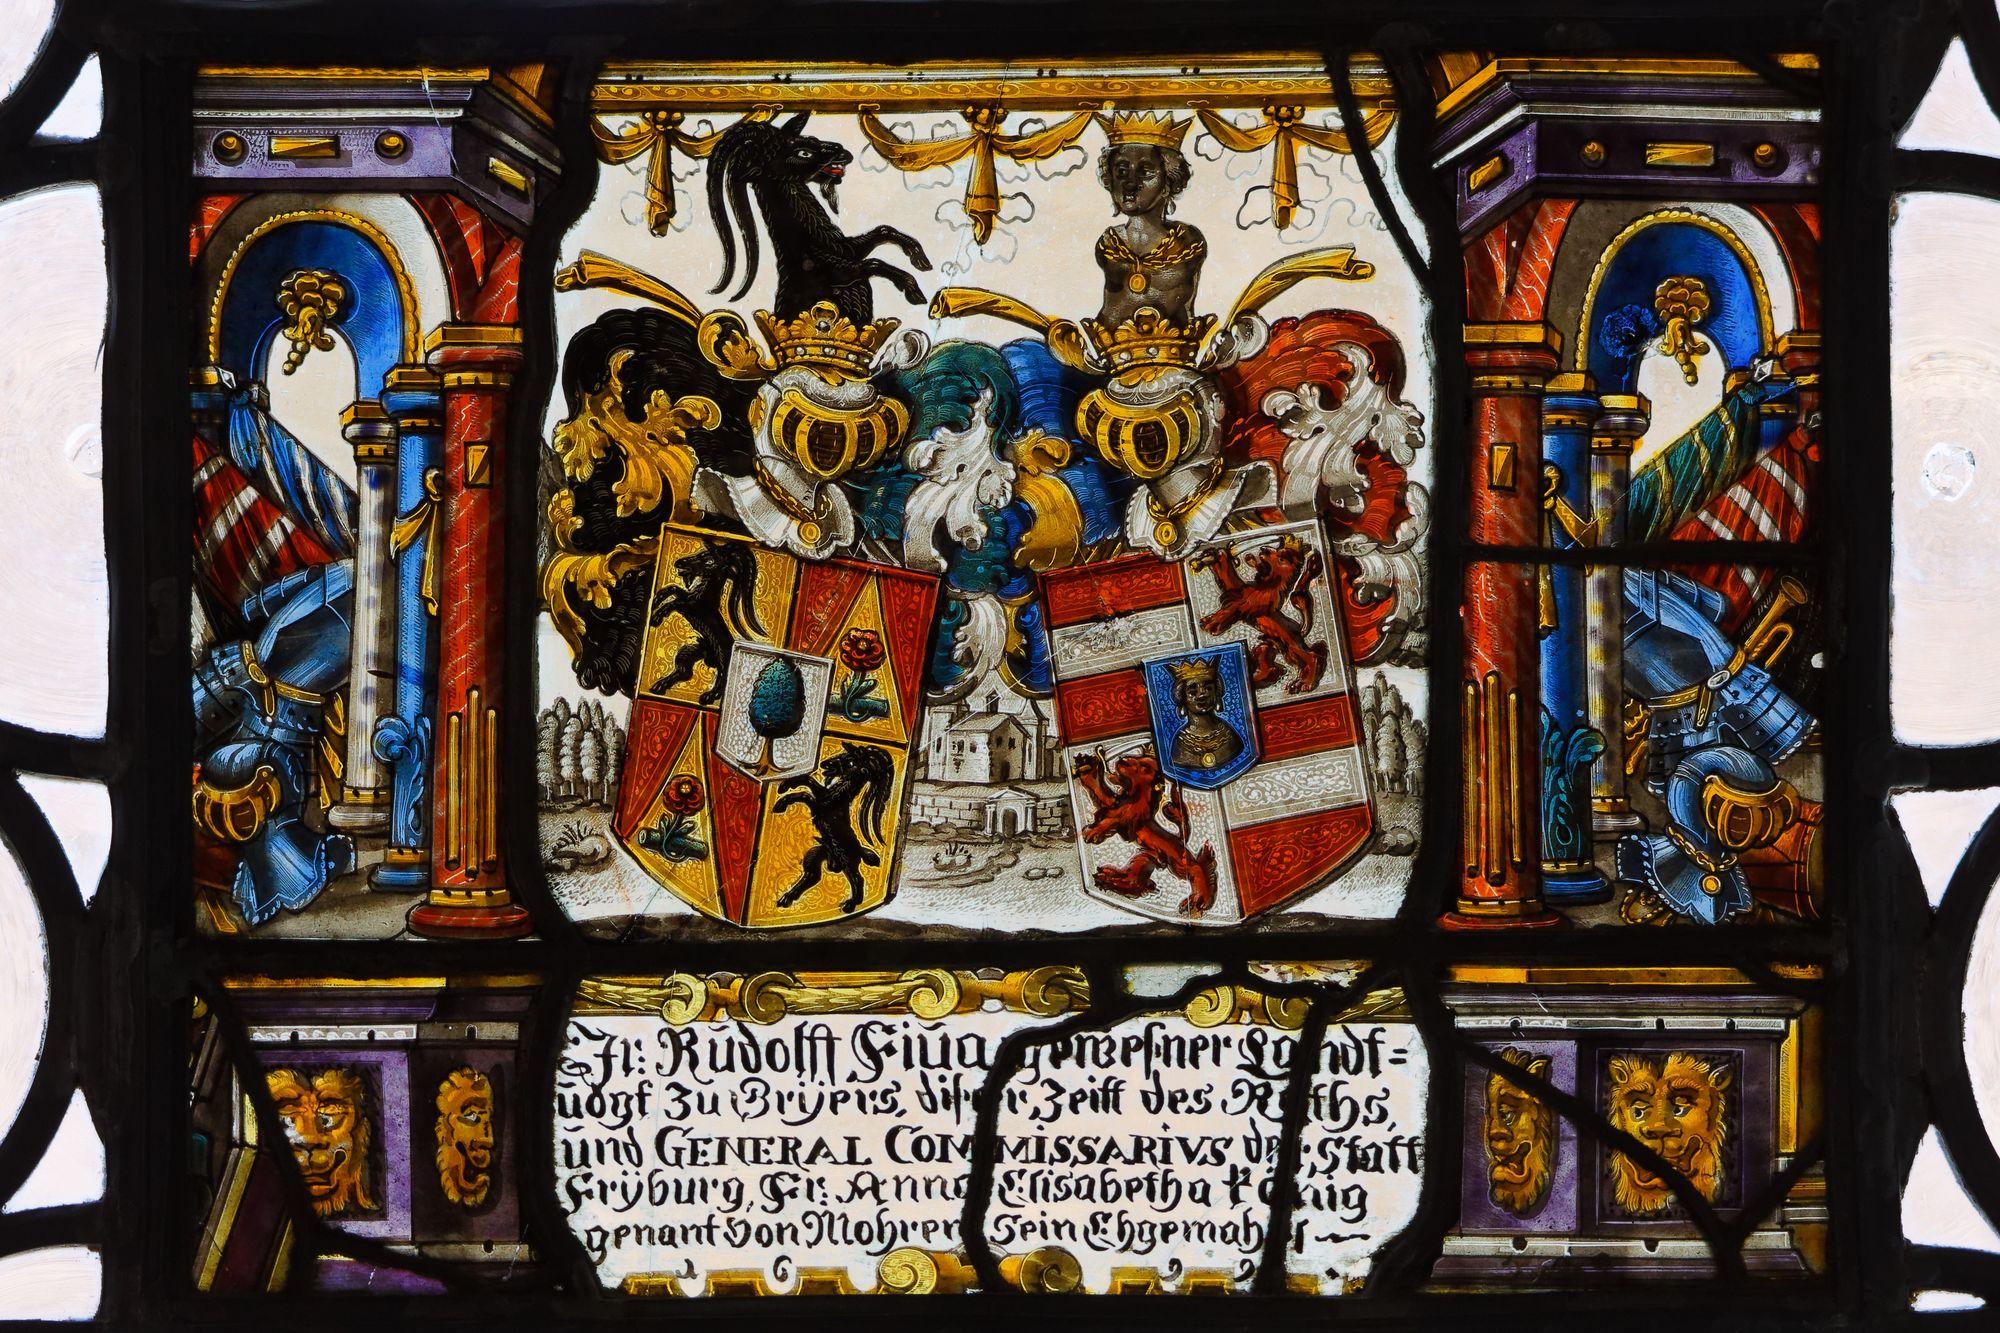 Jr: Rudolff Fiva gewesner Landt=
vogt zu Gryers, diser Zeitt des Raths,
und GENERAL COMMISSARIVS der Statt
Fryburg, Fr: Anna Elisabetha König
genant von Mohren sein Ehgemahel
1 6 9 9